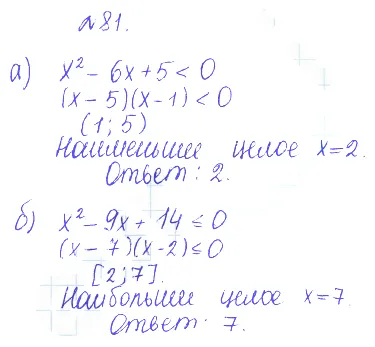 №81.
а) x² - 6x + 5 < 0
(x - 5)(x - 1) < 0
(1; 5)
Наименьшее целое x = 2.
Ответ: 2.
б) x² - 9x + 14 ≤ 0
(x - 7)(x - 2) ≤ 0
[2; 7].
Наибольшее целое x = 7.
Ответ: 7.